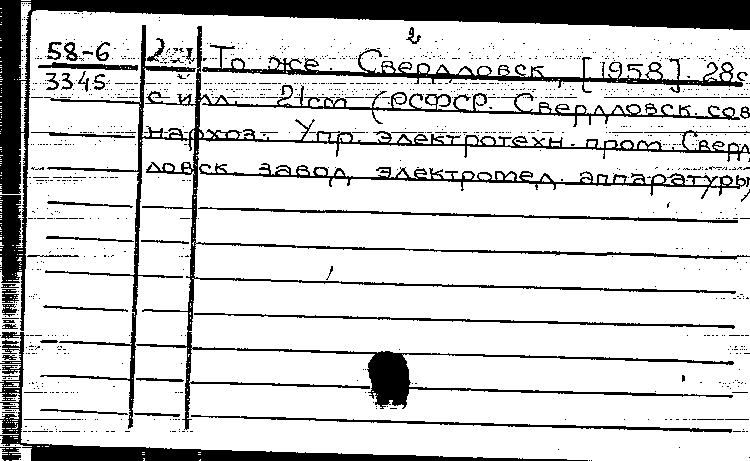 2
58-6
3345
То же. Свердловск, [1958]. 28с
с илл. 21cm (РСФСР. Свердловск. сов
нархоз. Упр. электротехн. пром. Сверд
ловск. завод электромед. аппаратуры)